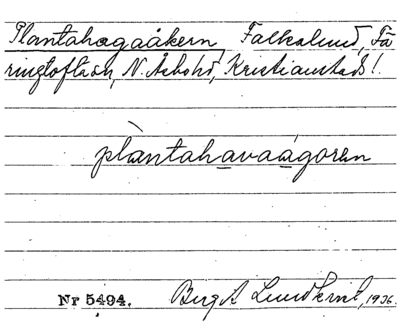 Plantahagaåkern, Falkalund, Fä
ringtofta sn, N. Åsbo hd, Kristianstads l.
plàntahavaágoren
Nr 5494. Birgit Lundkvist, 1936.